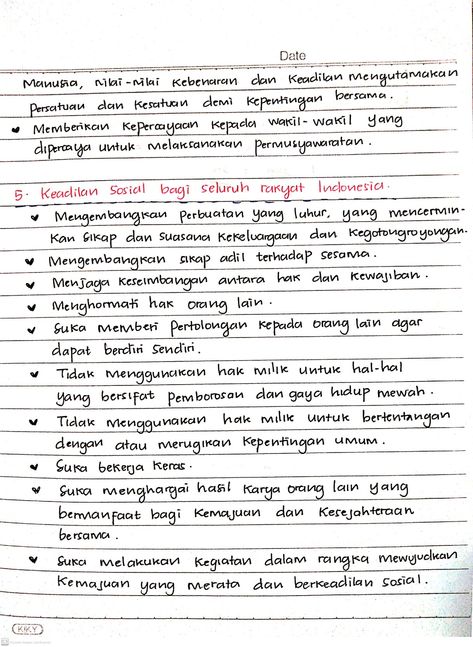 Date
Manusia, nilai-nilai kebenaran dan keadilan mengutamakan
persatuan dan kesatuan demi kepentingan bersama.
Memberikan kepercayaan kepada wakil-wakil yang
dipercaya untuk melaksanakan permusyawaratan.
5. Keadilan Sosial bagi seluruh rakyat Indonesia.
Mengembangkan perbuatan yang luhur, yang mencermin-
kan sikap dan suasana kekeluargaan dan kegotongroyongan.
Mengembangkan sikap adil terhadap sesama.
Menjaga keseimbangan antara hak dan kewajiban.
Menghormati hak orang lain.
Suka memberi pertolongan kepada orang lain agar
dapat berdiri sendiri.
Tidak menggunakan hak milik untuk hal-hal
yang bersifat pemborosan dan gaya hidup mewah.
Tidak menggunakan hak milik untuk bertentangan
dengan atau merugikan kepentingan umum.
Suka bekerja keras.
Suka menghargai hasil karya orang lain yang
bermanfaat bagi kemajuan dan kesejahteraan
bersama.
Suka melakukan kegiatan dalam rangka mewujudkan
kemajuan yang merata dan berkeadilan sosial.
KIKY